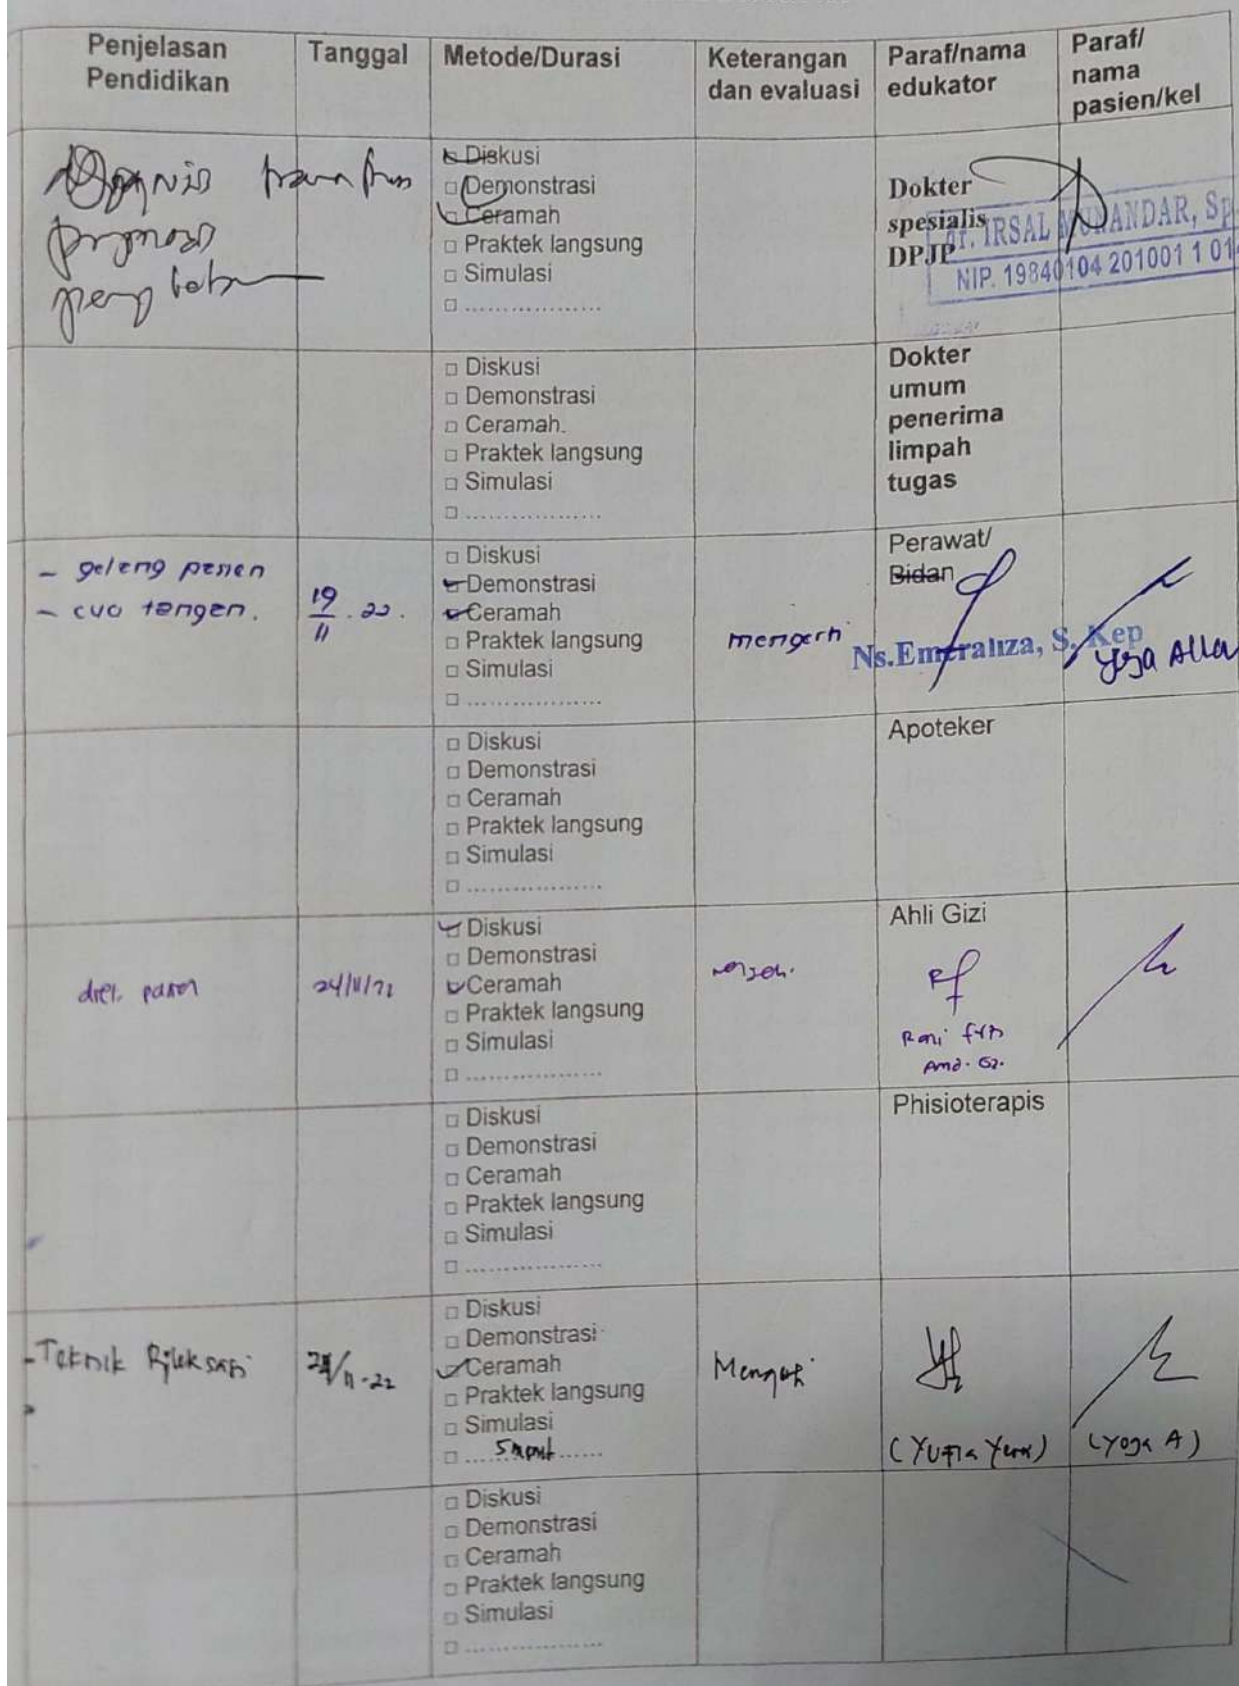 Penjelasan Pendidikan
Tanggal
Metode/Durasi
Keterangan dan evaluasi
Paraf/nama edukator
Paraf/ nama pasien/kel
Diskusi
Demonstrasi
Ceramah
Praktek langsung
Simulasi
....................
Dokter
spesialis
DPJP
dr. IRSAL MUNANDAR, Sp
NIP. 19840104 201001 1 01
Diskusi
Demonstrasi
Ceramah.
Praktek langsung
Simulasi
....................
Dokter
umum
penerima
limpah
tugas
- gelang pasien
- cuci tangan.
19/11 . 22.
Diskusi
Demonstrasi
Ceramah
Praktek langsung
Simulasi
....................
mengerti
Perawat/
Bidan
Ns.Emeraliza, S. Kep
Yoga
Diskusi
Demonstrasi
Ceramah
Praktek langsung
Simulasi
....................
Apoteker
24/11/22
Diskusi
Demonstrasi
Ceramah
Praktek langsung
Simulasi
....................
Ahli Gizi
Amd. Gz.
Diskusi
Demonstrasi
Ceramah
Praktek langsung
Simulasi
....................
Phisioterapis
- Teknik Rileksasi
Diskusi
Demonstrasi
Ceramah
Praktek langsung
Simulasi
5 menit
Mengerti
(Yoga A)
Diskusi
Demonstrasi
Ceramah
Praktek langsung
Simulasi
....................